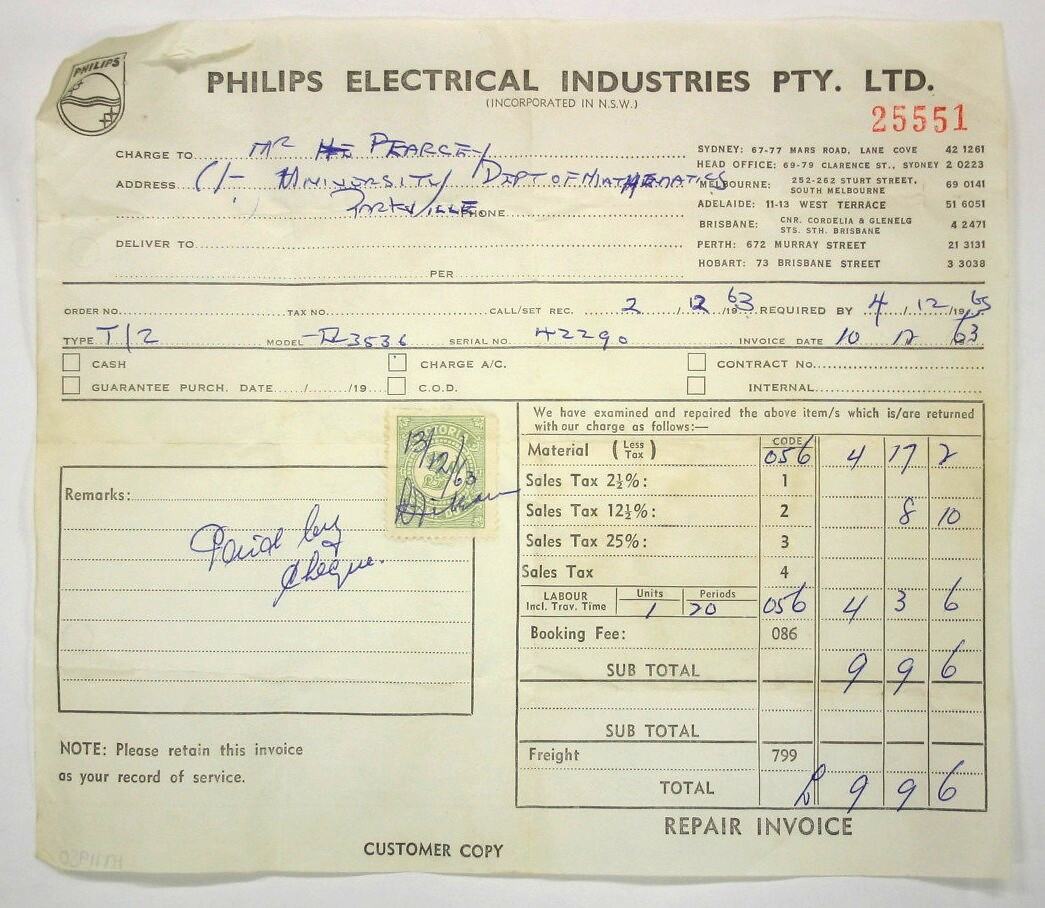 PHILIPS
PHILIPS ELECTRICAL INDUSTRIES PTY. LTD.
(INCORPORATED IN N.S.W.)
25551
CHARGE TO Mr PEARCEY
ADDRESS C/- UNIVERSITY DEPT OF MATHEMATICS
PARKVILLE PHONE
DELIVER TO
PER
SYDNEY: 67-77 MARS ROAD, LANE COVE 42 1261
HEAD OFFICE: 69-79 CLARENCE ST., SYDNEY 2 0223
MELBOURNE: 252-262 STURT STREET, SOUTH MELBOURNE 69 0141
ADELAIDE: 11-13 WEST TERRACE 51 6051
BRISBANE: CNR. CORDELIA & GLENELG STS. STH. BRISBANE 4 2471
PERTH: 672 MURRAY STREET 21 3131
HOBART: 73 BRISBANE STREET 3 3038
ORDER NO. TAX NO. CALL/SET REC. 2/12/1963 REQUIRED BY 4/12/19
TYPE T/2 MODEL 3536 SERIAL NO. 42290 INVOICE DATE 10 12 63
CASH CHARGE A/C. CONTRACT No.
GUARANTEE PURCH. DATE / /19 C.O.D. INTERNAL
We have examined and repaired the above item/s which is/are returned
with our charge as follows:—
Material (Less Tax) CODE 056 4 17 2
Sales Tax 2½%: 1
Sales Tax 12½%: 2 8 10
Sales Tax 25%: 3
Sales Tax 4
LABOUR Incl. Trav. Time Units 1 Periods 20 056 4 3 6
Booking Fee: 086
SUB TOTAL 9 9 6
SUB TOTAL
Freight 799
TOTAL £ 9 9 6
REPAIR INVOICE
13/12/63
Remarks:
Paid by
Cheque.
NOTE: Please retain this invoice
as your record of service.
CUSTOMER COPY